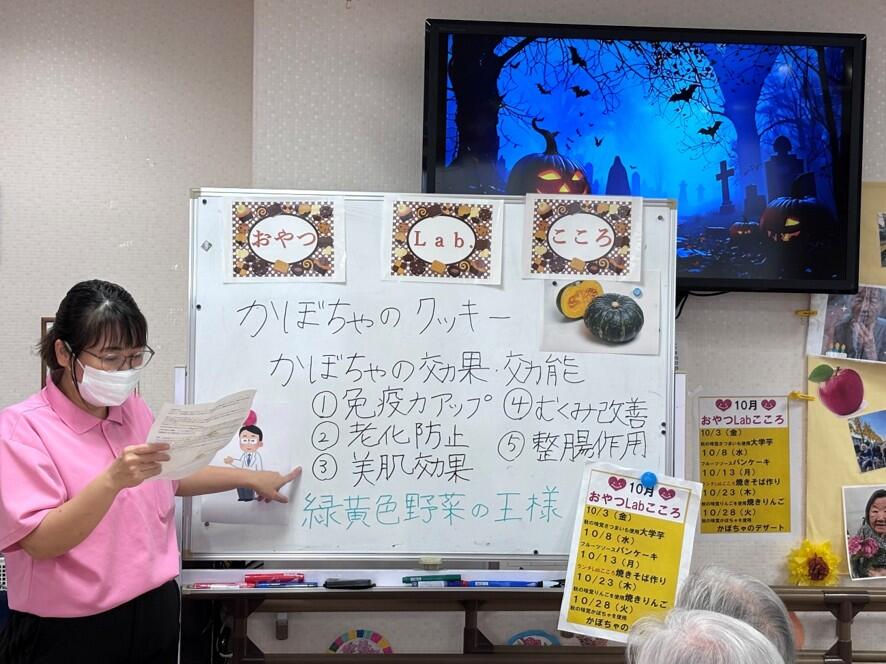 おやつ
Lab.
こころ
かぼちゃの クッキー
かぼちゃの効果・効能
①免疫力アップ ④むくみ改善
②老化防止 ⑤整腸作用
③美肌効果
緑黄色野菜の王様
10月
おやつLabこころ
10/3（金）
秋の味覚さつまいも使用大学芋
10/8（水）
フルーツソースパンケーキ
10/13（月）
ランチLabこころ焼きそば作り
10/23（木）
秋の味覚りんごを使用焼きりんご
10/28（火）
秋の味覚かぼちゃを使用
かぼちゃの
10月
おやつLabこころ
10/3（金）
秋の味覚さつまいも使用大学芋
10/8（水）
フルーツソースパンケーキ
10/13（月）
ランチLabこころ焼きそば作り
10/23（木）
秋の味覚りんごを使用焼きりんご
10/28（火）
秋の味覚かぼちゃを使用
かぼちゃのデザート